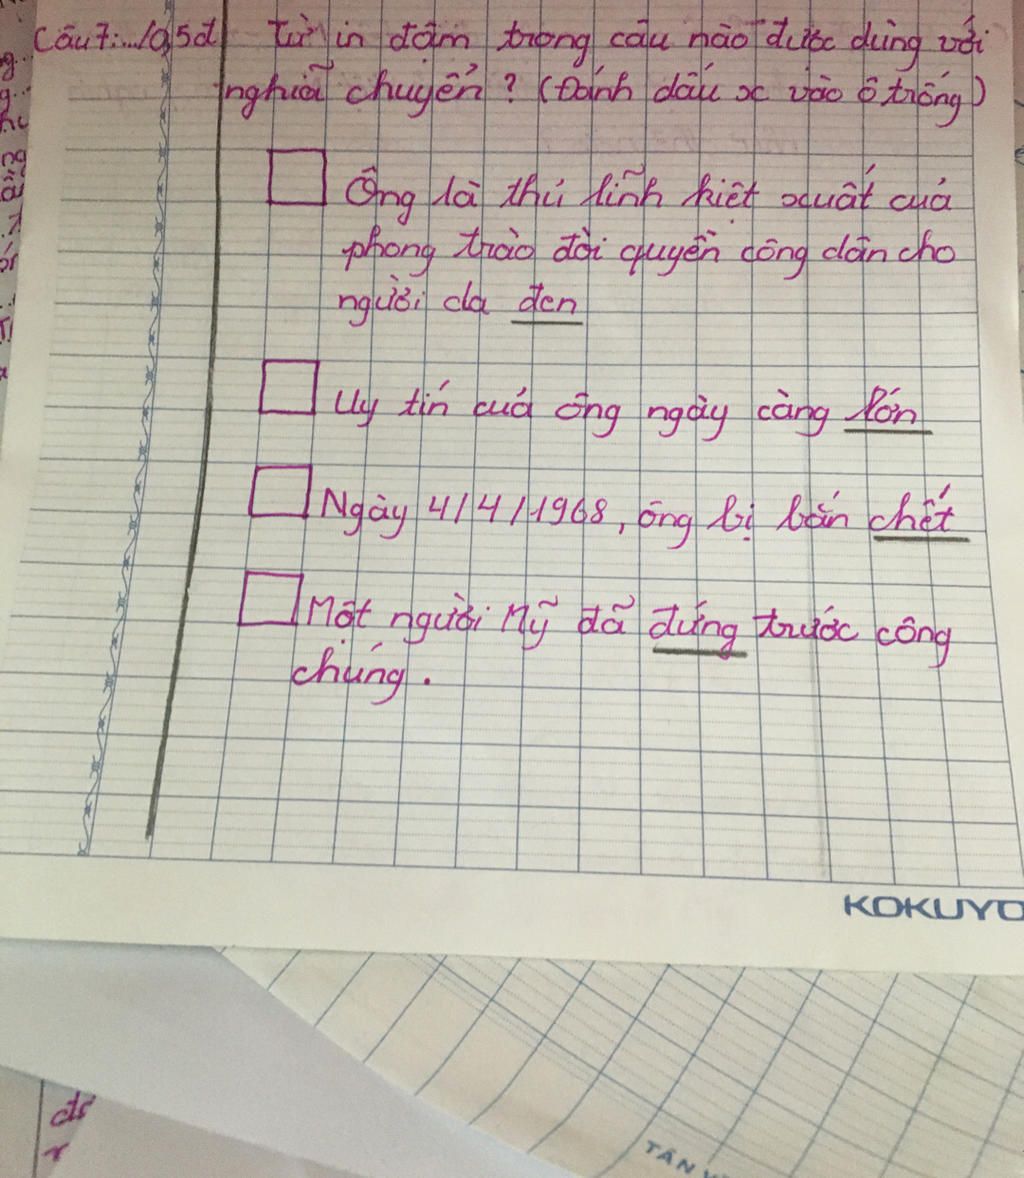 Câu 7:.../0,5đ Từ in đậm trong câu nào được dùng với
nghĩa chuyển? (Đánh dấu x vào ô trống)
Ông là thủ lĩnh kiệt xuất của
phong trào đòi quyền công dân cho
người da đen
Uy tín của ông ngày càng lớn
Ngày 4/4/1968, ông bị bắn chết
Một người Mỹ đã đứng trước công
chúng.
KOKUYO
TÂN